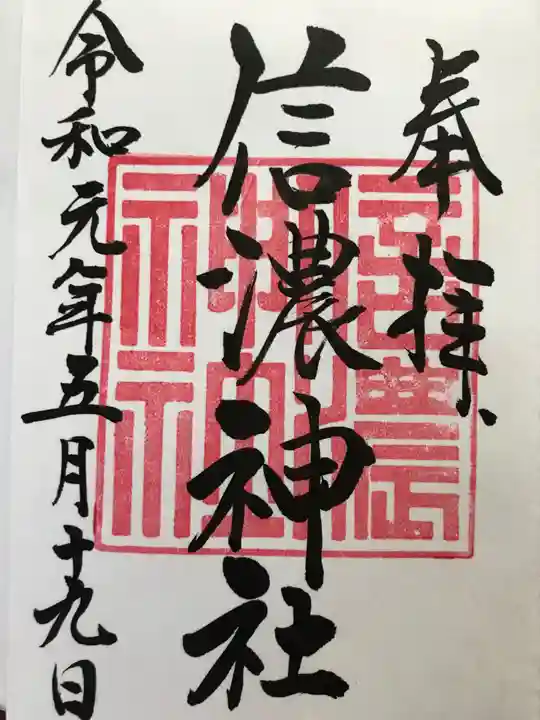 奉拝
信濃神社
令和元年五月十九日